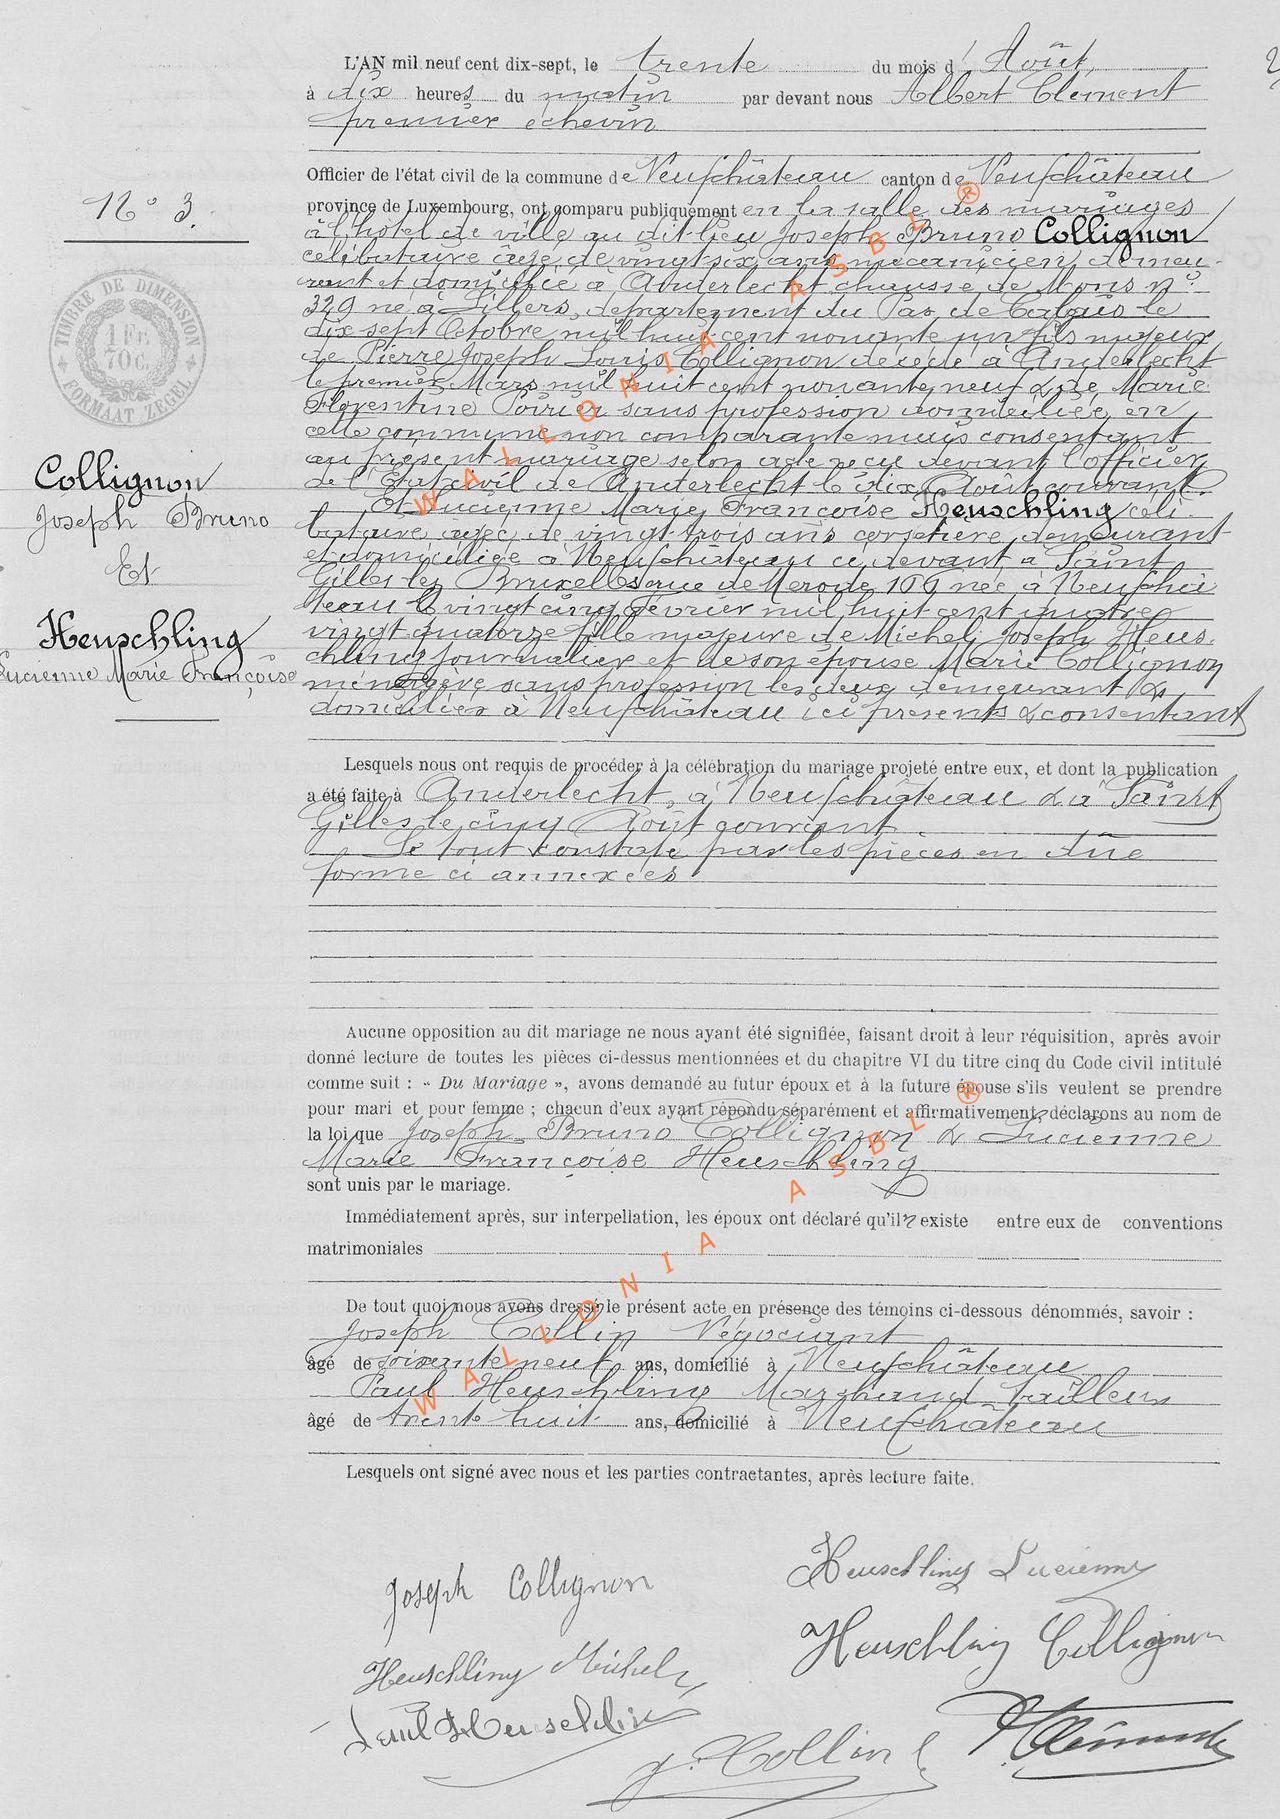 L'AN mil neuf cent dix-sept, le trente du mois d'Août,
à dix heures du matin par devant nous Albert Clément
premier échevin
Officier de l'état civil de la commune de Neufchâteau canton de Neufchâteau
province de Luxembourg, ont comparu publiquement en la salle des mariages
à l'hôtel de ville au dit lieu Joseph Bruno Collignon
célibataire âgé de vingt six ans mécanicien demeu-
rant et domicilié à Anderlecht chaussé de Mons n°
329 né à Lillers, département du Pas de Calais le
dix sept Octobre mil huit cent nonante un fils majeur
de Pierre Joseph Louis Collignon décédé à Anderlecht
le premier Mars mil huit cent nonante neuf & de Marie
Florentine Poirier sans profession domiciliée en
cette commune non comparante mais consentant
au présent mariage selon acte reçu devant l'officier
de l'État civil de Anderlecht le dix Août courant.
Et Lucienne Marie Françoise Heuschling céli-
bataire agée de vingt trois ans corsetière demeurant
et domiciliée à Neufchâteau ci devant à Saint
Gilles lez Bruxelles rue de Merode 169 née à Neufchâ
teau le vingt cinq Février mil huit cent quatre
vingt quatorze fille majeure de Michel Joseph Heus-
chling journalier et de son épouse Marie Collignon
ménagère sans profession les deux demeurant &
domiciliés à Neufchâteau ici présents & consentant
N° 3.
TIMBRE DE DIMENSION
1 Fr.
70 C.
FORMAAT ZEGEL
Collignon
Joseph Bruno
Et
Heuschling
Lucienne Marie Françoise
Lesquels nous ont requis de procéder à la célébration du mariage projeté entre eux, et dont la publication
a été faite à Anderlecht, à Neufchâteau & à Saint
Gilles le cinq Août courant.
Le tout constaté par les pièces en dûe
forme ci annexées
Aucune opposition au dit mariage ne nous ayant été signifiée, faisant droit à leur réquisition, après avoir
donné lecture de toutes les pièces ci-dessus mentionnées et du chapitre VI du titre cinq du Code civil intitulé
comme suit : « Du Mariage », avons demandé au futur époux et à la future épouse s'ils veulent se prendre
pour mari et pour femme ; chacun d'eux ayant répondu séparément et affirmativement, déclarons au nom de
la loi que Joseph Bruno Collignon & Lucienne
Marie Françoise Heuschling
sont unis par le mariage.
Immédiatement après, sur interpellation, les époux ont déclaré qu'il n'existe entre eux de conventions
matrimoniales
De tout quoi nous avons dressé le présent acte en présence des témoins ci-dessous dénommés, savoir :
Joseph Collin Négociant
âgé de soixante neuf ans, domicilié à Neufchâteau
Paul Heuschling Marchand tailleur
âgé de trente huit ans, domicilié à Neufchâteau
Lesquels ont signé avec nous et les parties contractantes, après lecture faite.
Joseph Collignon
Heuschling Lucienne
Heuschling Collignon
Heuschling Michel
Paul Heuschling
J. Collin
A Clément
WALLONIA ASBL ®
WALLONIA ASBL ®